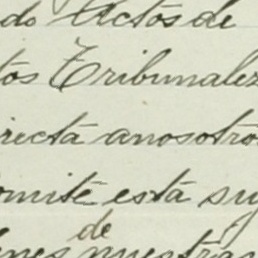 do Actos de
tos Tribunales
recta anosotros
omité está su
de
nes nuestras